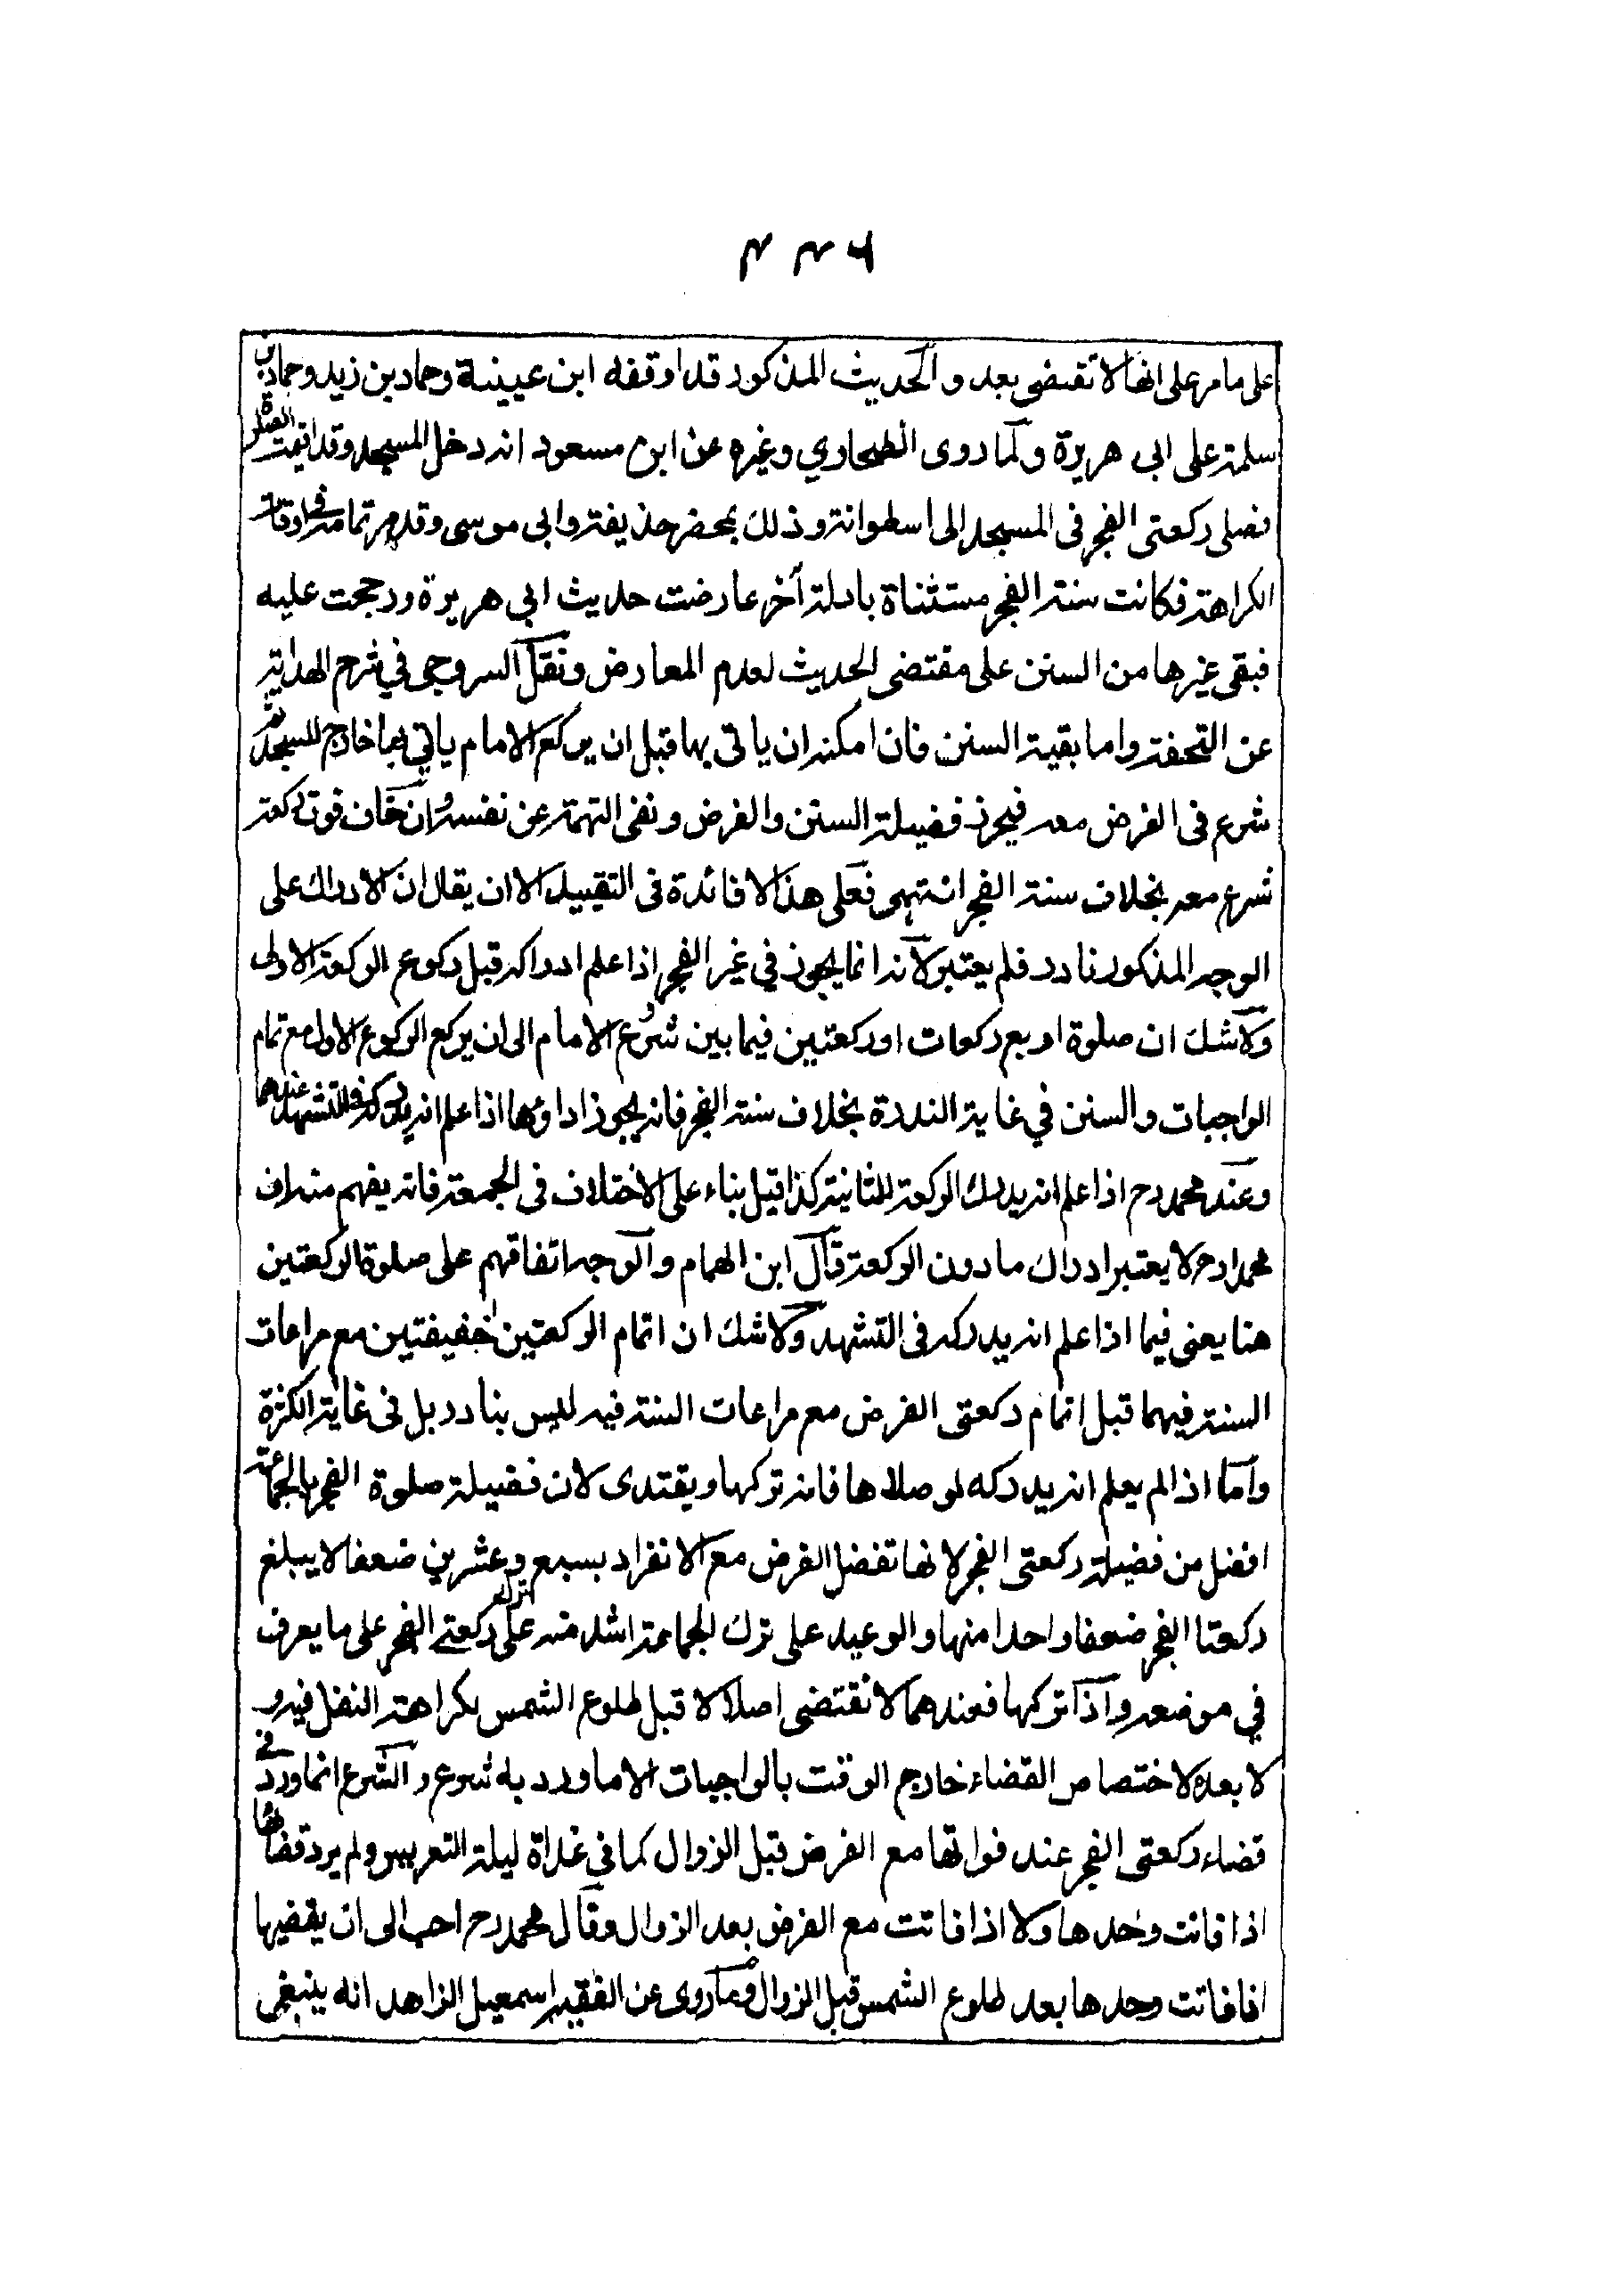 ۴۳۶
على ما مر على انها لا تقضى بعد والحديث المذكور قد اوقفه ابن عيينة وحماد بن زيد وحماد بن
سلمة على ابى هريرة ولما روى الطحاوي وغيره عن ابن مسعود انه دخل المسجد وقد اقيمت الصلوة
فصلى ركعتى الفجر فى المسجد الى اسطوانة وذلك بمحضر حذيفة وابى موسى وقد مر تمامه فى اوقات
الكراهة فكانت سنة الفجر مستثناة بادلة أخر عارضت حديث ابى هريرة ورجحت عليه
فبقى غيرها من السنن على مقتضى الحديث لعدم المعارض ونقل السروجى في شرح الهداية
عن التحفة واما بقية السنن فان امكنه ان ياتى بها قبل ان يركع الامام ياتي بها خارج المسجد ثم
شرع فى الفرض معه فيحرز فضيلة السنن والفرض ونفى التهمة عن نفسه وان خاف فوت ركعة
شرع معه بخلاف سنة الفجر انتهى فعلى هذا لا فائدة فى التقييد الا ان يقال ان الادراك على
الوجه المذكور نادر فلم يعتبر لانه انما يجوز في غير الفجر اذا علم ادراكه قبل ركوع الركعة الاولى
ولا شك ان صلوة اربع ركعات او ركعتين فيما بين شروع الامام الى ان يركع الركوع الاول مع تمام
الواجبات والسنن في غاية الندرة بخلاف سنة الفجر فانه يجوز اداؤها اذا علم انه يدركه فى التشهد عندهما
وعند محمد رح اذا علم انه يدرك الركعة الثانية كذا قيل بناء على الاختلاف فى الجمعة فانه يفهم منه ان
محمدا رح لا يعتبر ادراك ما دون الركعة قال ابن الهمام والوجه اتفاقهم على صلوة الركعتين
هنا يعنى فيما اذا علم انه يدركه فى التشهد ولا شك ان اتمام الركعتين خفيفتين مع مراعات
السنة فيهما قبل اتمام ركعتى الفرض مع مراعات السنة فيه ليس بنادر بل فى غاية الكثرة
واما اذا لم يعلم انه يدركه لو صلاها فانه تركها ويقتدى لان فضيلة صلوة الفجر بالجماعة
افضل من فضيلة ركعتى الفجر لانها تفضل الفرض مع الانفراد بسبع وعشرين ضعفا لا يبلغ
ركعتا الفجر ضعفا واحدا منها والوعيد على ترك الجماعة اشد منه على ترك ركعتے الفجر على ما يعرف
في موضعه واذا تركها فعندهما لا تقتضى اصلا لا قبل طلوع الشمس لكراهة النفل فيه و
لا بعده لاختصاص القضاء خارج الوقت بالواجبات الا ما ورد به شرع والشرع انما ورد فے
قضاء ركعتى الفجر عند فواتها مع الفرض قبل الزوال كما في غداة ليلة التعريس ولم يرد قضائها
اذا فاتت وحدها ولا اذا فاتت مع الفرض بعد الزوال وقال محمد رح احب الى ان يقضيها
اذا فاتت وحدها بعد طلوع الشمس قبل الزوال وما روى عن الفقيه اسمعيل الزاهد انه ينبغى